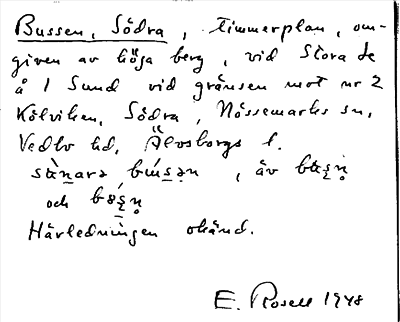 Bussen, Södra, timmerplan, om-
given av höga berg, vid Stora Le
å 1 Sund vid gränsen mot nr 2
Kölviken, Södra, Nössemarks sn,
Vedbo hd, Älvsborgs l.
sö̀narə bús̠ən, äv bɵs̠n̥
och
Härledningen okänd.
E. Rosell 1948